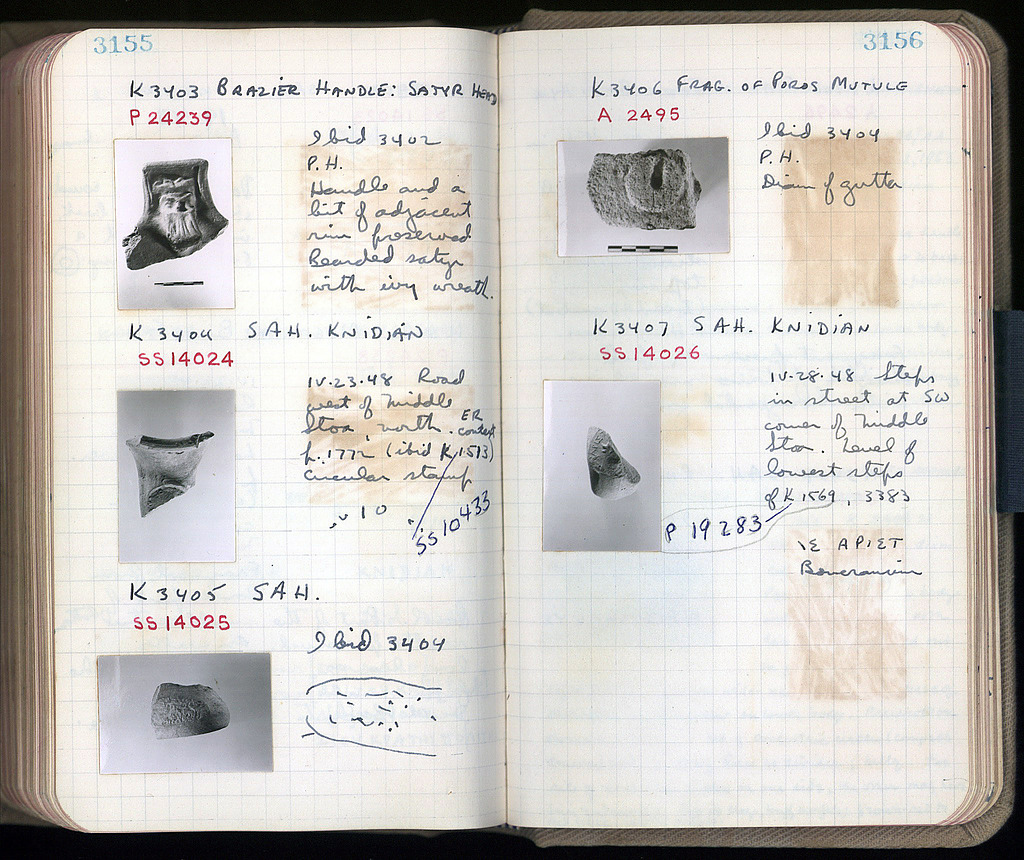 3155
K 3403 BRAZIER HANDLE: SATYR HEAD
P 24239
Ibid 3402
P.H.
Handle and a
bit of adjacent
rim preserved
Bearded satyr
with ivy wreath.
K 3404 SAH. KNIDIAN
SS 14024
IV.23.48 Road
west of Middle
Stoa, north. ER
context
p. 1772 (ibid K 1513)
Circular stamp
SS 10433
K 3405 SAH.
SS 14025
Ibid 3404
3156
K 3406 FRAG. OF POROS MUTULE
A 2495
Ibid 3404
P.H.
Diam of gutta
K 3407 SAH. KNIDIAN
SS 14026
IV.28.48 Steps
in street at SW
corner of Middle
Stoa. Level of
lowest steps
of K 1569, 3383
P 19283
ΙΣ ΑΡΙΣΤ